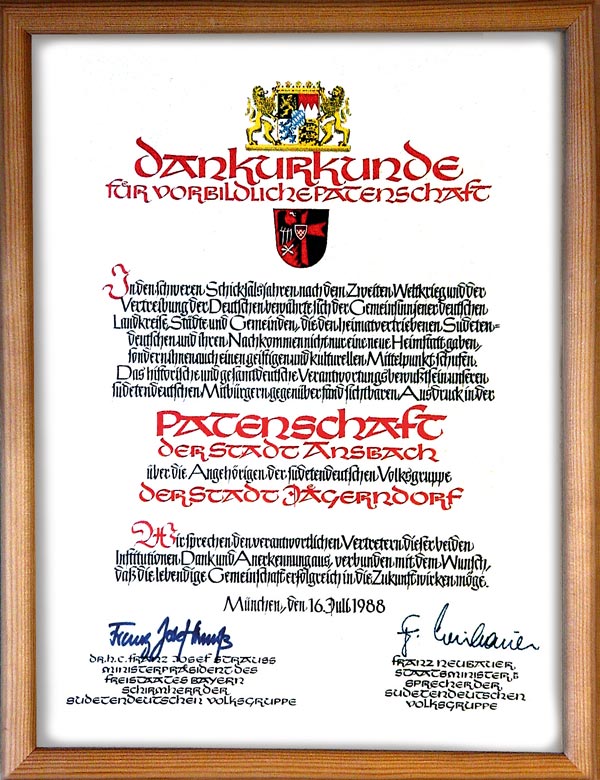 Dankurkunde
für vorbildliche Patenschaft
In den schweren Schicksalsjahren nach dem Zweiten Weltkrieg und der
Vertreibung der Deutschen bewährte sich der Gemeinsinn jener deutschen
Landkreise, Städte und Gemeinden, die den heimatvertriebenen Sudeten=
deutschen und ihren Nachkommen nicht nur eine neue Heimstatt gaben,
sondern ihnen auch einen geistigen und kulturellen Mittelpunkt schufen.
Das historische und gesamtdeutsche Verantwortungsbewußtsein unseren
sudetendeutschen Mitbürgern gegenüber fand sichtbaren Ausdruck in der
Patenschaft
der Stadt Ansbach
über die Angehörigen der sudetendeutschen Volksgruppe
der Stadt Jägerndorf
Wir sprechen den verantwortlichen Vertretern dieser beiden
Institutionen Dank und Anerkennung aus, verbunden mit dem Wunsch,
daß die lebendige Gemeinschaft erfolgreich in die Zukunft wirken möge.
München, den 16. Juli 1988
Franz Josef Strauß
F. Neubauer
Dr. h.c. Franz Josef Strauss
Ministerpräsident des
Freistaates Bayern
Schirmherr der
Sudetendeutschen Volksgruppe
Franz Neubauer,
Staatsminister,
Sprecher der
Sudetendeutschen
Volksgruppe